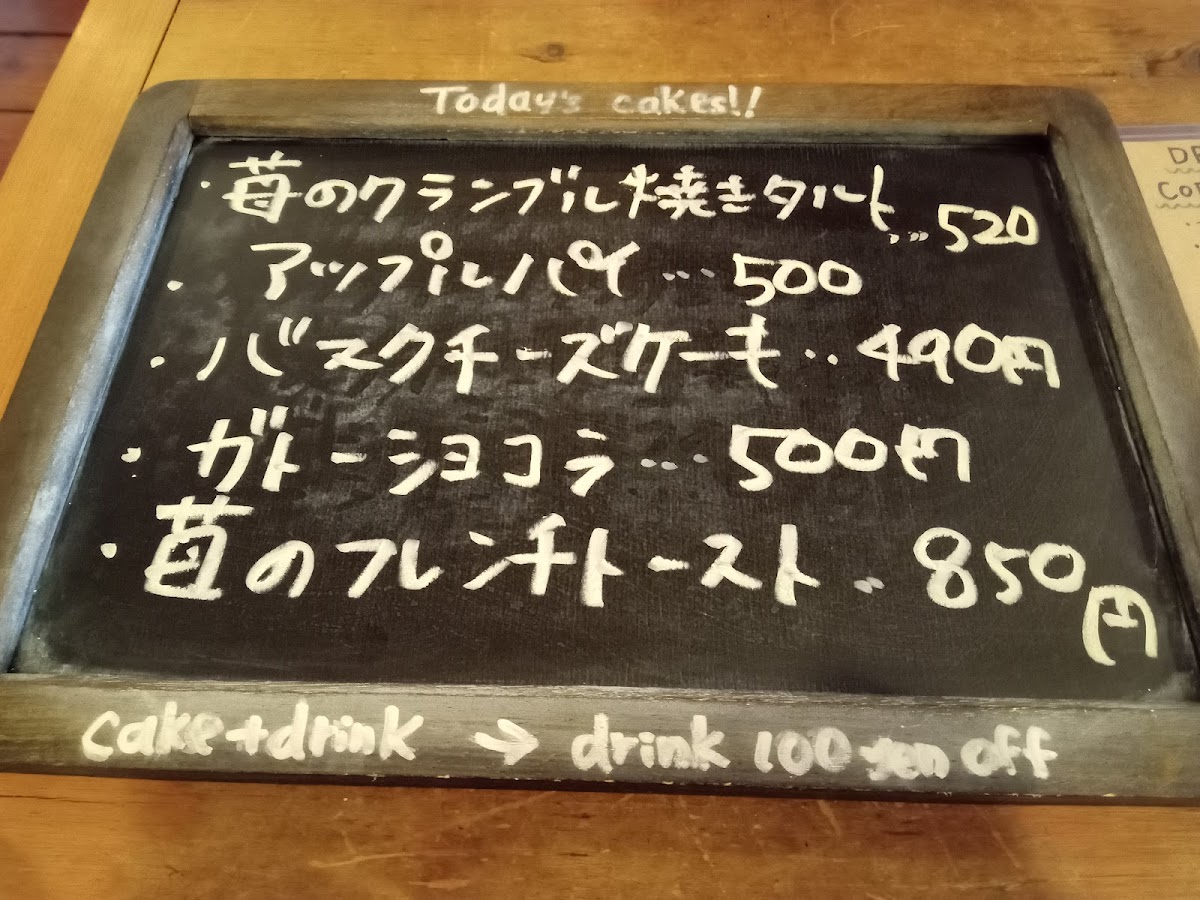 Today's cakes!!
・苺のクランブル焼きタルト…520
・アップルパイ…500
・バスクチーズケーキ‥490円
・ガトーショコラ…500円
・苺のフレンチトースト‥850円
cake+drink → drink 100 yen off